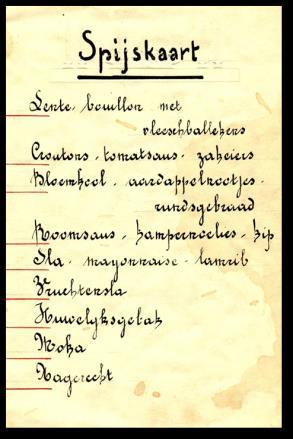 Spijskaart
Lente-bouillon met
vleeschballekens
Croutons-tomatsaus-zakeiers
Bloemkool-aardappelnootjes-
rundsgebraad
Roomsaus-kampernoelies-kip
Sla-mayonnaise-lamrib
Vruchtensla
Huwelyksgebak
Moka
Nagerecht